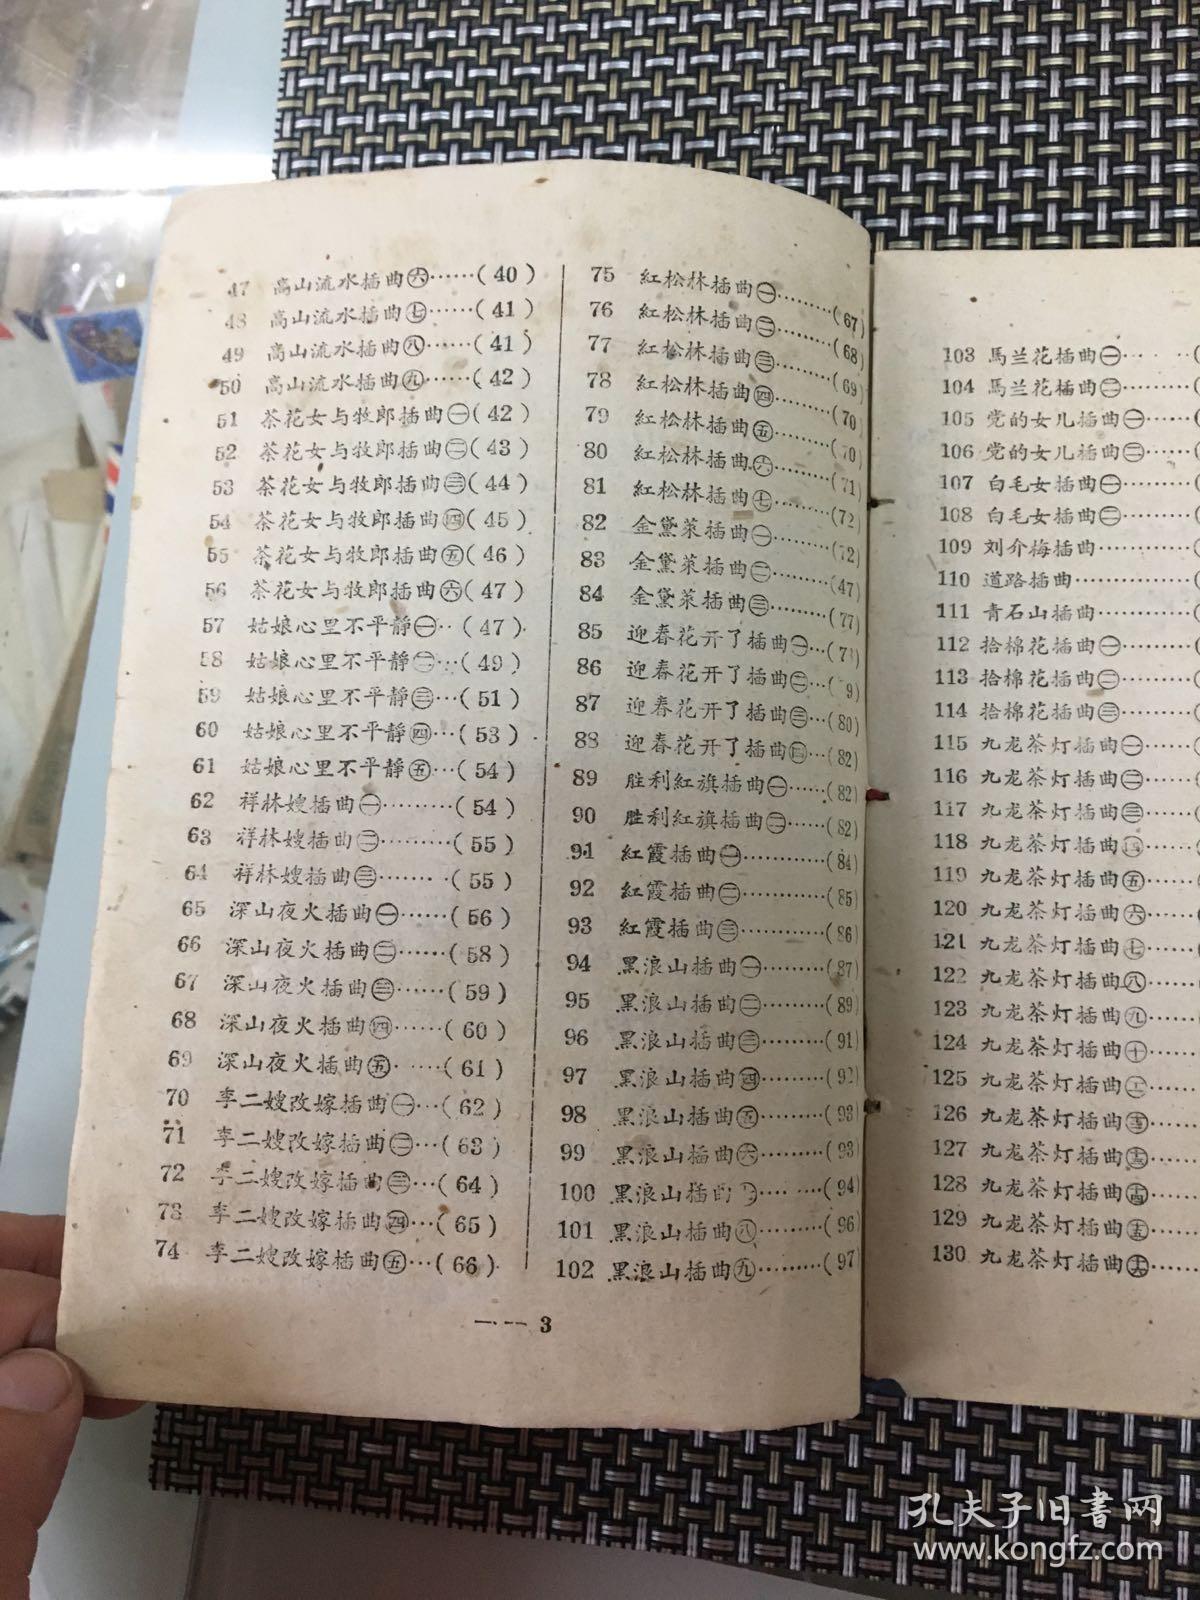 47 高山流水插曲㊅……(40)
48 高山流水插曲㊆……(41)
49 高山流水插曲㊇……(41)
50 高山流水插曲㊈……(42)
51 茶花女与牧郎插曲㊀(42)
52 茶花女与牧郎插曲㊁(43)
53 茶花女与牧郎插曲㊂(44)
54 茶花女与牧郎插曲㊃(45)
55 茶花女与牧郎插曲㊄(46)
56 茶花女与牧郎插曲㊅(47)
57 姑娘心里不平静㊀··(47)
58 姑娘心里不平静㊁…(49)
59 姑娘心里不平静㊂…(51)
60 姑娘心里不平静㊃…(53)
61 姑娘心里不平静㊄…(54)
62 祥林嫂插曲㊀………(54)
63 祥林嫂插曲㊁………(55)
64 祥林嫂插曲㊂………(55)
65 深山夜火插曲㊀……(56)
66 深山夜火插曲㊁……(58)
67 深山夜火插曲㊂……(59)
68 深山夜火插曲㊃……(60)
69 深山夜火插曲㊄……(61)
70 李二嫂改嫁插曲㊀…(62)
71 李二嫂改嫁插曲㊁…(63)
72 李二嫂改嫁插曲㊂…(64)
73 李二嫂改嫁插曲㊃…(65)
74 李二嫂改嫁插曲㊄…(66)
75 紅松林插曲㊀………(67)
76 紅松林插曲㊁………(68)
77 紅松林插曲㊂………(69)
78 紅松林插曲㊃………(70)
79 紅松林插曲㊄………(70)
80 紅松林插曲㊅………(71)
81 紅松林插曲㊆………(72)
82 金黛萊插曲㊀………(72)
83 金黛萊插曲㊁………(47)
84 金黛萊插曲㊂………(77)
85 迎春花开了插曲㊀…
86 迎春花开了插曲㊁…
87 迎春花开了插曲㊂…(80)
88 迎春花开了插曲㊃…(82)
89 胜利紅旗插曲㊀……(82)
90 胜利紅旗插曲㊁……(82)
91 紅霞插曲㊀…………(84)
92 紅霞插曲㊁…………(85)
93 紅霞插曲㊂…………(86)
94 黑浪山插曲㊀………(87)
95 黑浪山插曲㊁………(89)
96 黑浪山插曲㊂………(91)
97 黑浪山插曲㊃………(92)
98 黑浪山插曲㊄………(93)
99 黑浪山插曲㊅………(93)
100 黑浪山插曲………(94)
101 黑浪山插曲㊇………(96)
102 黑浪山插曲㊈………(97)
— 3
103 馬兰花插曲㊀……(
104 馬兰花插曲㊁………(
105 党的女儿插曲㊀……(
106 党的女儿插曲㊁……(
107 白毛女插曲㊀………(
108 白毛女插曲㊁………(
109 刘介梅插曲…………(
110 道路插曲……………(
111 青石山插曲…………(
112 拾棉花插曲㊀………(
113 拾棉花插曲㊁………(
114 拾棉花插曲㊂………(
115 九龙茶灯插曲㊀……(
116 九龙茶灯插曲㊁……(
117 九龙茶灯插曲㊂……(
118 九龙茶灯插曲㊃……
119 九龙茶灯插曲㊄……
120 九龙茶灯插曲㊅……
121 九龙茶灯插曲㊆……
122 九龙茶灯插曲㊇……
123 九龙茶灯插曲㊈……
124 九龙茶灯插曲㊉……
125 九龙茶灯插曲……
126 九龙茶灯插曲……
127 九龙茶灯插曲……
128 九龙茶灯插曲……
129 九龙茶灯插曲……
130 九龙茶灯插曲……
孔夫子旧書网
www.kongfz.com